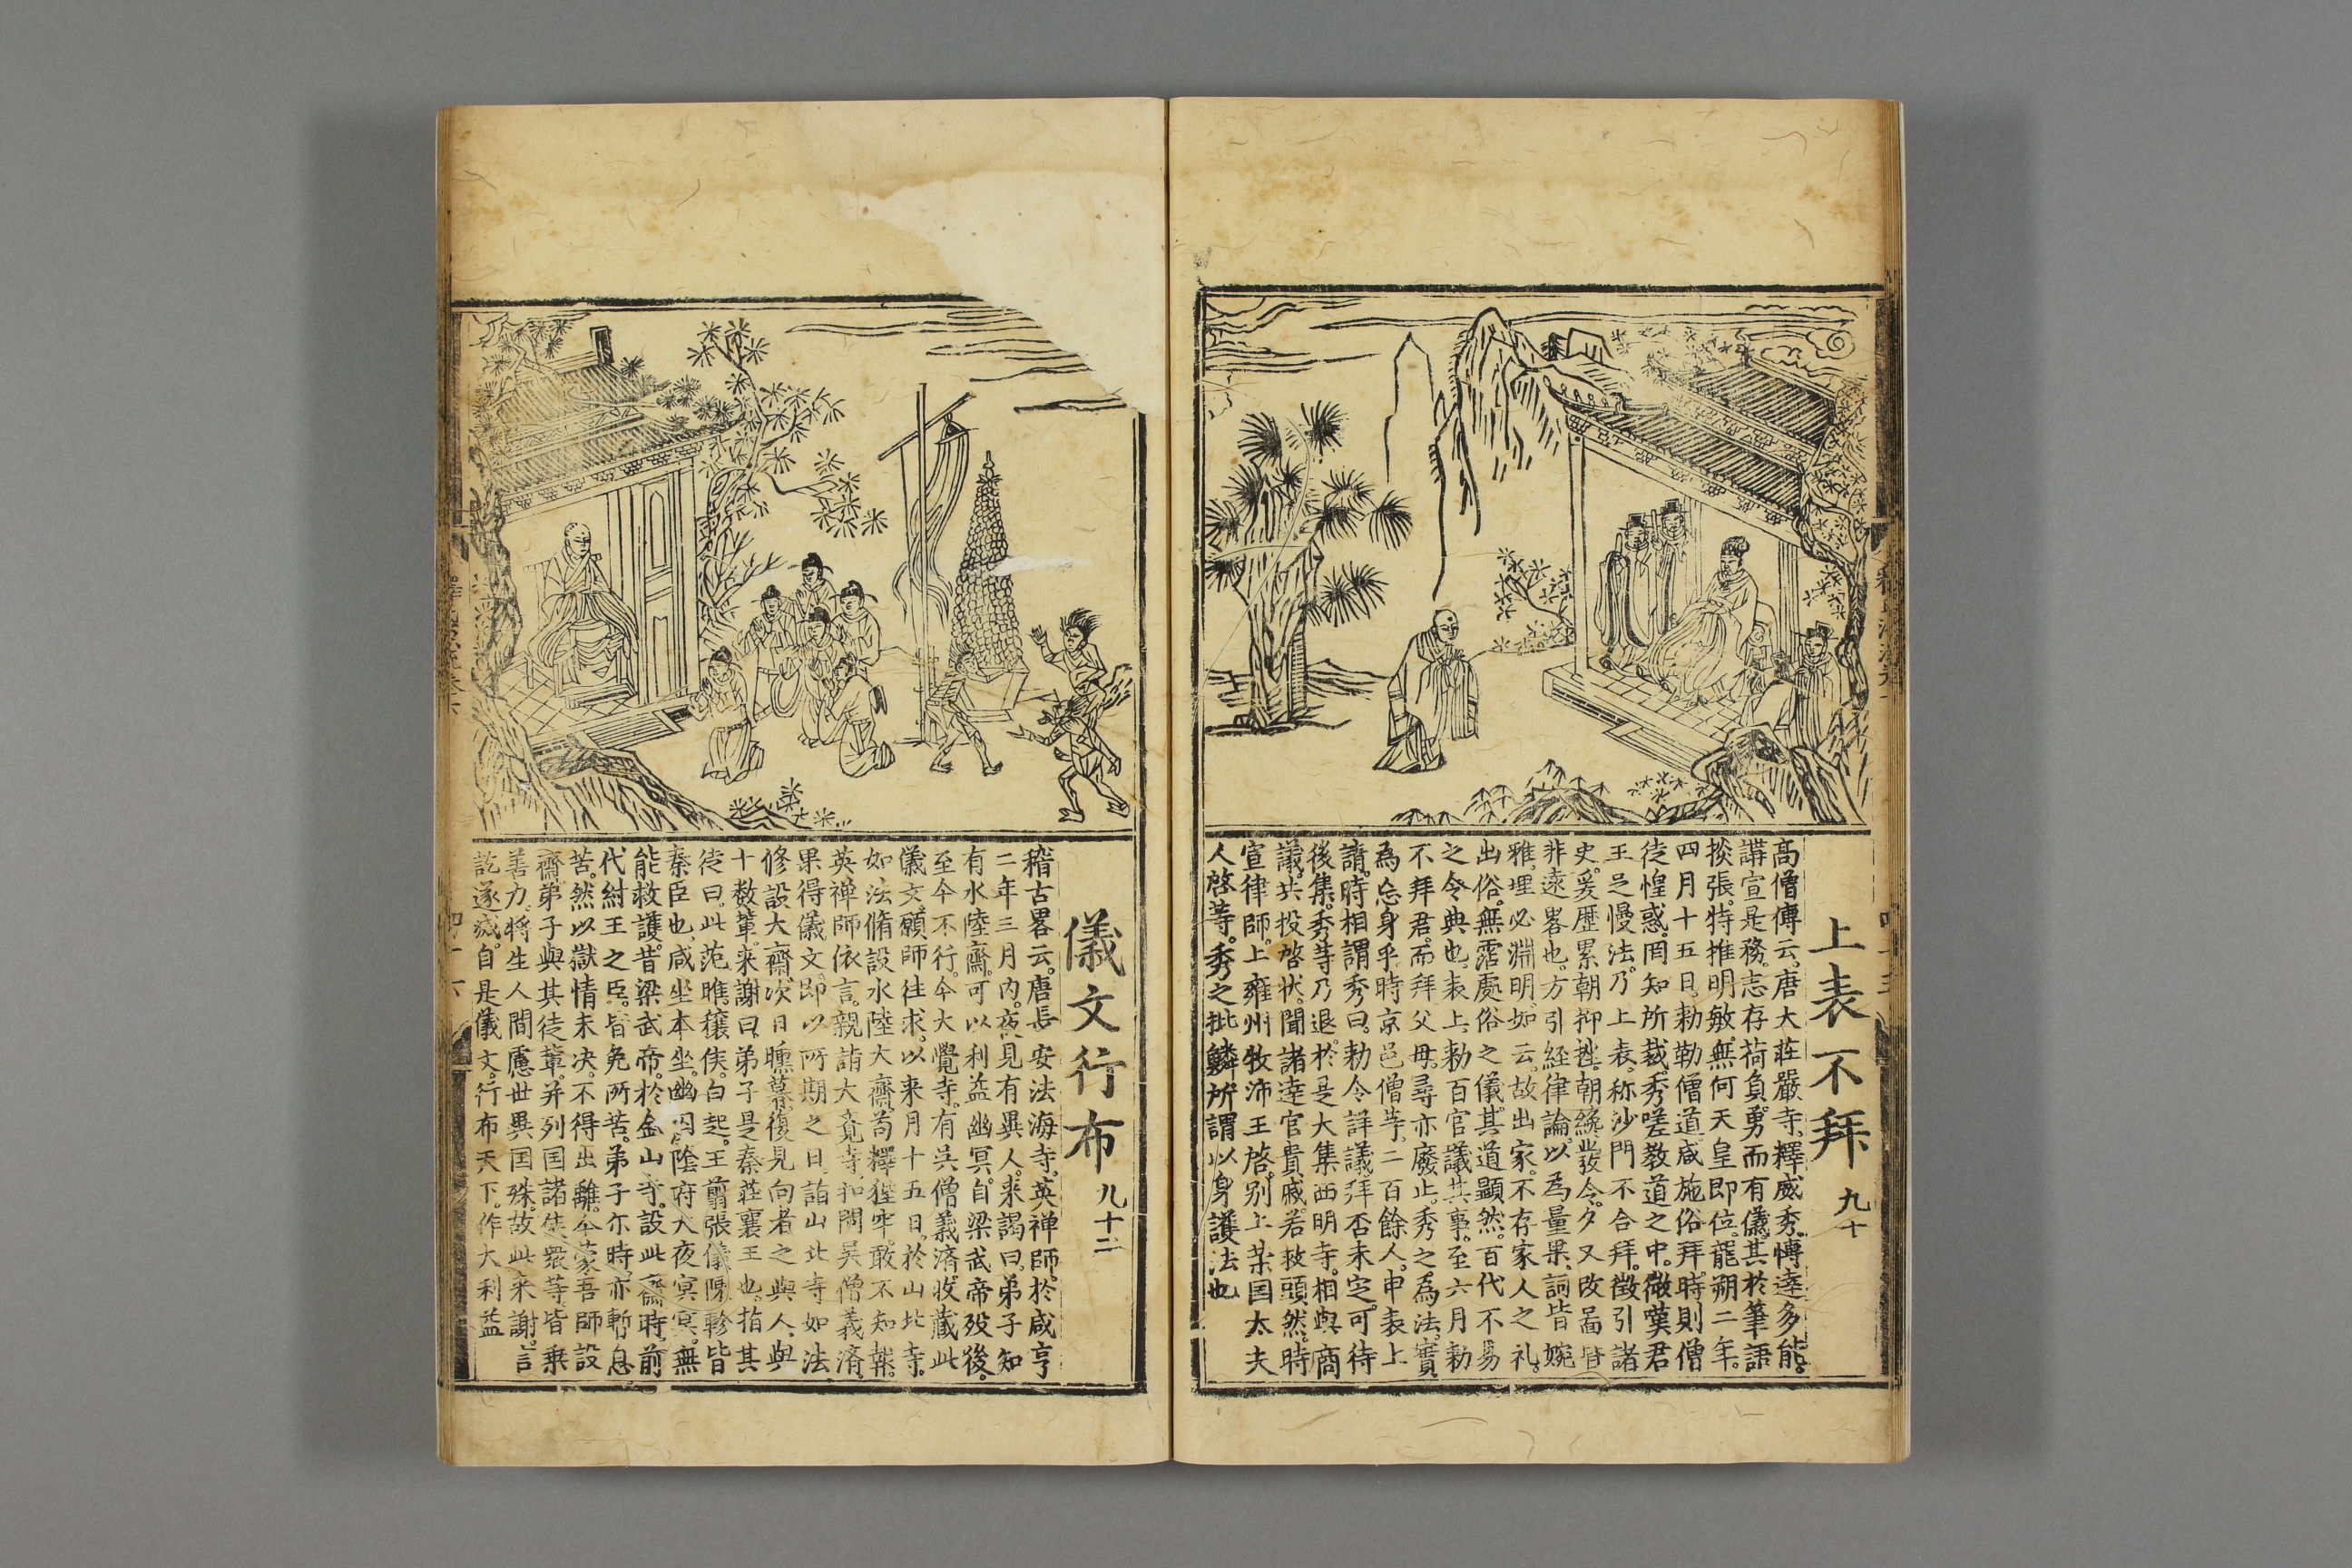 上表不拜 九十
高僧傳云。唐大莊嚴寺。釋威秀。博達多能。
講宣是務。志存荷負。勇而有儀。其於筆語
掞張。特推明敏。無何天皇即位。龍朔二年。
四月十五日。勑勒僧道咸施俗拜。時則僧
徒惶惑。罔知所裁。秀嗟教道之中。微嘆君
王之慢法。乃上表。称沙門不合拜。徵引諸
史。爰歷累朝抑挫。朝纔發令。夕又改啚皆
非遠畧也。方引経律論。以為量果。詞皆婉
雅。理必淵明。如云。故出家。不存家人之礼。
出俗。無霑處俗之儀。其道顯然。百代不易
之令典也。表上。勑百官議其事。至六月勑
不拜君。而拜父母。尋亦廢止。秀之為法。實
為忘身乎。時京邑僧等。二百餘人。申表上
請。時相謂秀曰。勑令詳議。拜否未定。可待
後集。秀等乃退。於是大集西明寺。相與商
議。共投啓狀。聞諸達官貴戚。若救頭然。時
宣律師。上雍州牧沛王啓。别上荣国太夫
人啓等。秀之批鱗。所謂以身護法也。
儀文行布 九十二
稽古畧云。唐長安法海寺。英禅師。於咸亨
二年三月内。夜見有異人。来謁曰。弟子知
有水陸齋。可以利益幽冥。自梁武帝歿後。
至今不行。今大覺寺。有吳僧義済。收藏此
儀文。願師往求。以来月十五日。於山北寺。
如法脩設水陸大齋。苟釋狴牢。敢不知報。
英禅師依言。親詣大覺寺。扣問吴僧義済。
果得儀文。即以所期之日。詣山北寺如法
修設大齋。次日曛暮。復見向者之異人。與
十数輩。来謝曰。弟子是秦莊襄王也。指其
徒曰。此范睢。穰侯。白起。王翦張儀陳軫皆
秦臣也。咸坐本坐。幽囚陰府。大夜冥冥。無
能救護。昔梁武帝。於金山寺。設此齋時。前
代紂王之臣。皆免所苦。弟子亦時。亦暫息
苦。然以獄情未决。不得出離。今蒙吾師設
齋。弟子與其徒輩。并列国諸侯衆等。皆乗
善力。将生人間。慮世異国殊。故此来謝。言
訖遂滅。自是儀文。行布天下。作大利益